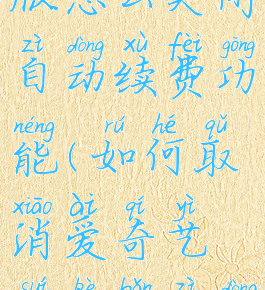 zì dòng xù fèi gōng
自动续费功
néng rú hé qǔ
能(如何取
xiāo ài qí yì
消爱奇艺